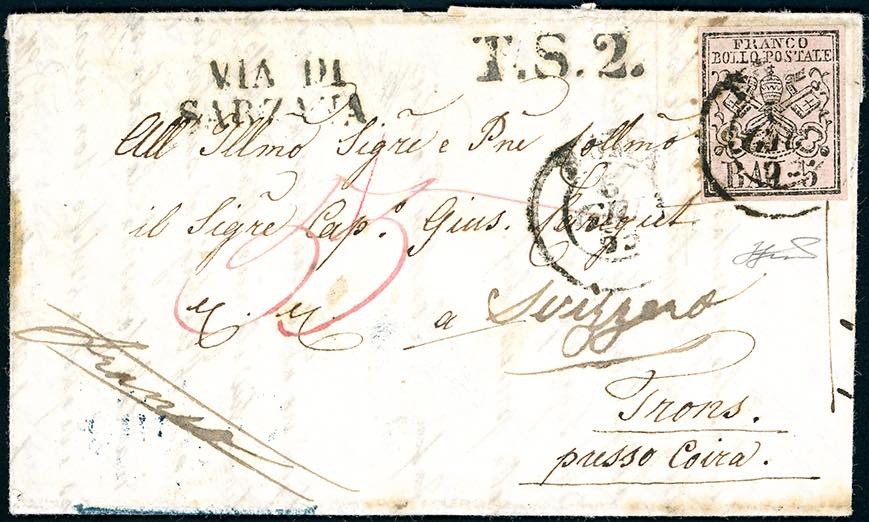 VIA DI
SARZANA
T.S.2.
FRANCO
BOLLO POSTALE
BAJ. 5
All' Illmo Sigre e Pne
il Sigre Cap. Gius.
55
a Svizzera
franca
Trons.
presso Coira.